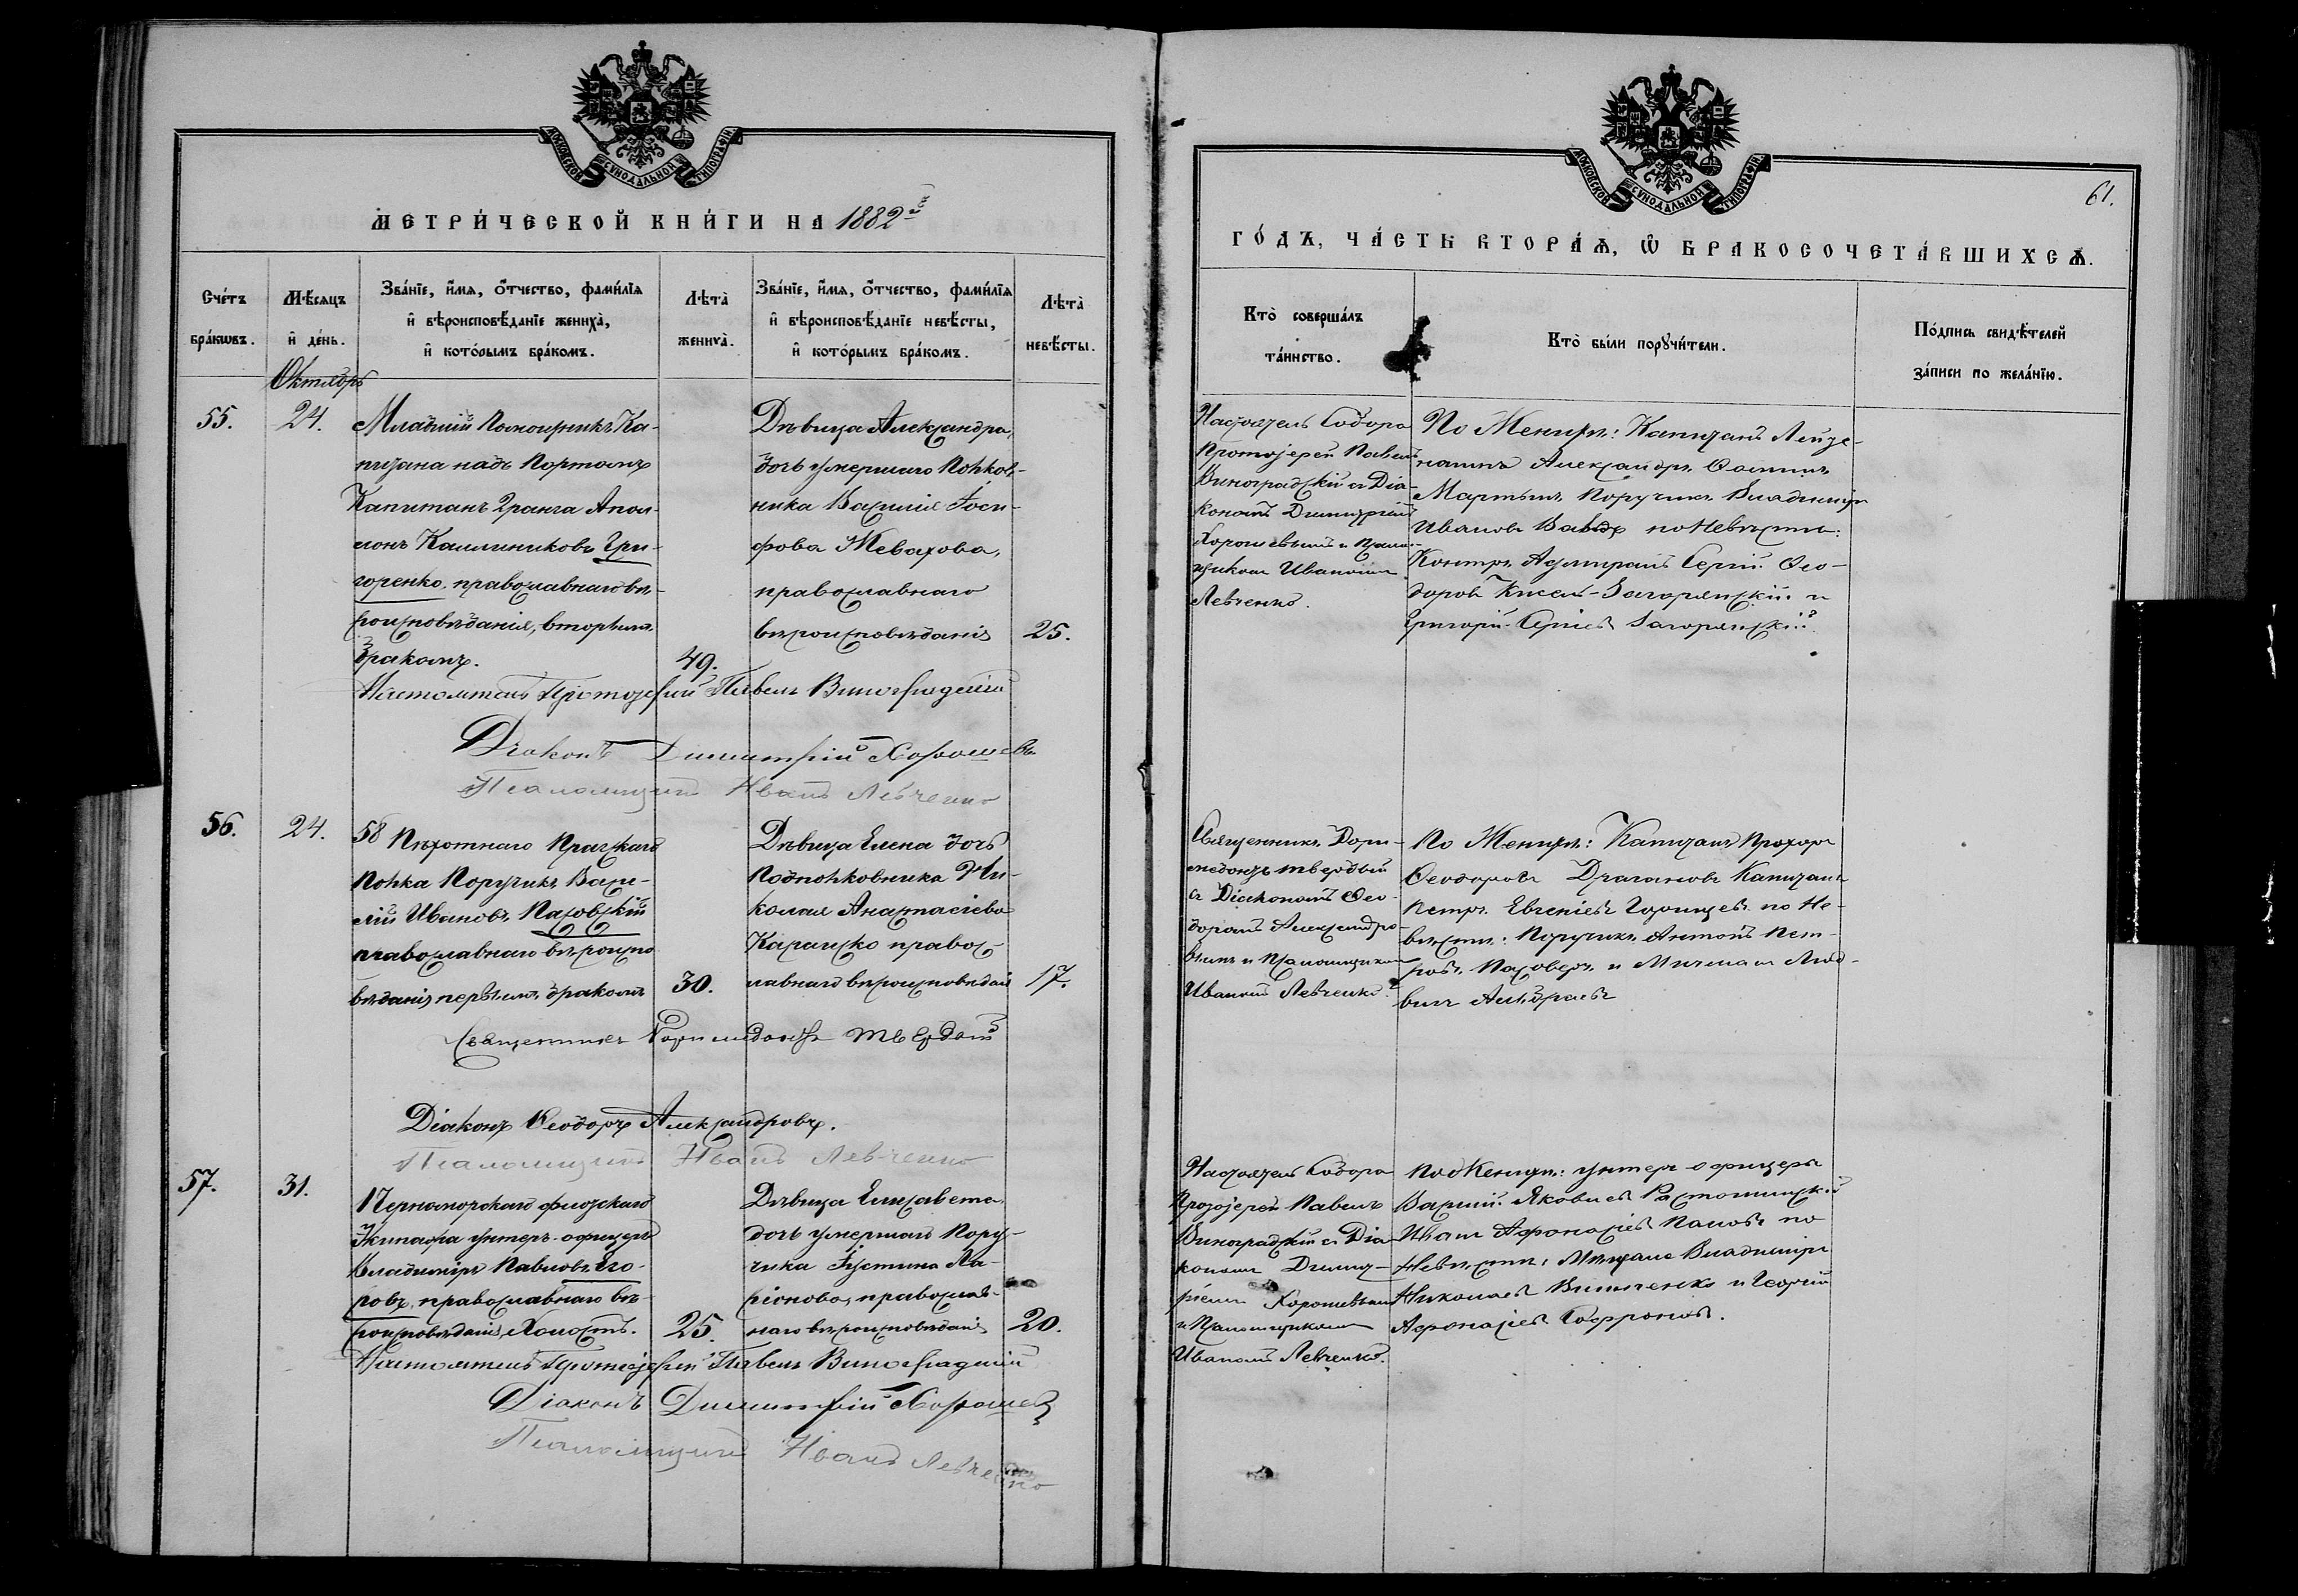 МОСКОВСКОЙ СѴНОДАЛЬНОЙ ТИПОГРАФІИ.
МЕТРИ́ЧЕСКОЙ КНИ́ГИ НА 1882й
Сче́тъ бра́кѡвъ.
Мѣ́сяцъ и҆ де́нь.
Зва́нїе, и҆́мѧ, ѻ҆́тчество, фами́лїѧ
и҆ вѣроисповѣ́данїе женихà,
и҆ кото́рымъ бра́комъ.
Лѣтà женихà.
Зва́нїе, и҆́мѧ, ѻ҆́тчество, фами́лїѧ
и҆ вѣроисповѣ́данїе невѣ́сты,
и҆ кото́рымъ бра́комъ.
Лѣтà невѣ́сты.
Октябрь
55.
24.
Младшій Помощникъ Ка-
питана надъ Портомъ
Капитанъ 2 ранга Апол-
лонъ Каллиниковъ Гри-
горенко, православнаго вѣ-
роисповѣданія, вторымъ
бракомъ.
49.
Дѣвица Александра,
дочь умершаго Полков-
ника Василія Іоси-
фова Жевахова,
православнаго
вѣроисповѣданія
25.
Настоятель Протоіерей Павелъ Виноградскій
Діаконъ Димитрій Хорошевъ
Псаломщикъ Иванъ Левченко
56.
24.
58 Пѣхотнаго Пражскаго
Полка Поручикъ Васи-
лій Ивановъ
православнаго вѣроиспо
вѣданія, первымъ бракомъ
30.
Дѣвица Елена дочь
Подполковника Ни-
колая Анастасіева
православ-
наго вѣроисповѣданія
17.
Священникъ Доримедонтъ Твердый
Діаконъ Ѳеодоръ Александровъ.
Псаломщикъ Иванъ Левченко
57.
31.
Черноморскаго флотскаго
Экипажа унтеръ-офицеръ
Владиміръ Павловъ Его-
ровъ, православнаго вѣ-
роисповѣданія, холостъ.
25.
Дѣвица Елисавета,
дочь умершаго Пору-
чика Іустина Ла-
ріонова, православ-
наго вѣроисповѣданія
20.
Настоятель Протоіерей Павелъ Виноградскій
Діаконъ Димитрій Хорошевъ
Псаломщикъ Иванъ Левченко
МОСКОВСКОЙ СѴНОДАЛЬНОЙ ТИПОГРАФІИ.
61.
ГО́ДЪ, ЧА́СТЬ ВТОРА́Ѧ, Ѽ БРАКОСОЧЕТА́ВШИХСѦ.
Кто̀ соверша́лъ та́инство.
Кто̀ бы́ли порꙋчи́тели.
По́дпись свидѣ́телей за́писи по жела́нїю.
Настоятель Собора
Протоіерей Павелъ
Виноградскій съ Діа-
кономъ Димитріемъ
Хорошевымъ и Псалом-
щикомъ Иваномъ
Левченко.
По Женихѣ: Капитанъ Лейте-
нантъ Александръ
Поручикъ Владиміръ
Ивановъ по Невѣстѣ:
Контръ Адмиралъ Сергій Ѳео-
доровъ Кисель-Загорянскій и
Григорій Сергіевъ Загорянскій.
Священникъ Дори-
медонтъ Твердый
съ Діакономъ Ѳео-
доромъ Александро-
вымъ и Псаломщикомъ
Иваномъ Левченко.
По Женихѣ: Капитанъ Прохоръ
Ѳеодоровъ Драгановъ Капитанъ
Петръ Евгеніевъ по Не-
вѣстѣ: Поручикъ Антонъ Пет-
ровъ и Мичманъ
Настоятель Собора
Протоіерей Павелъ
Виноградскій съ Діа-
кономъ Димит-
ріемъ Хорошевымъ
и Псаломщикомъ
Иваномъ Левченко.
По Женихѣ: унтеръ-офицеры
Василій Яковлевъ
Иванъ Афонасіевъ Поповъ по
Невѣстѣ: Мѣщане Владиміръ
Николаевъ и Георгій
Афонасіевъ Софроновъ.